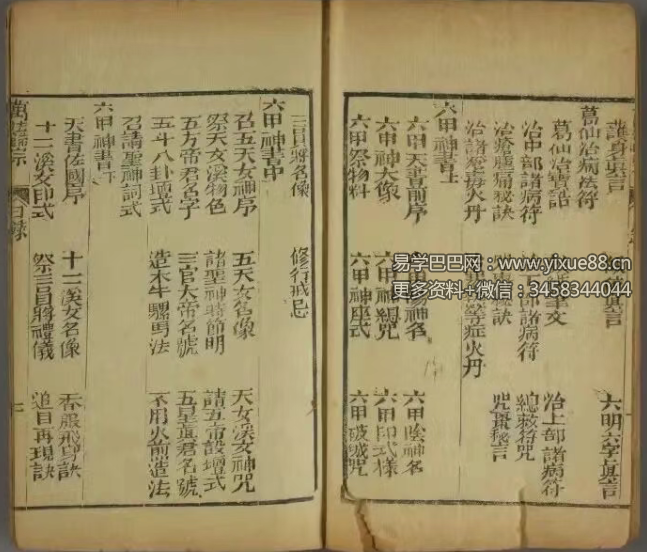 護身眞言 眞言 六明六字眞言
葛仙治病法符
葛仙治 聖文 治上部諸病符
治中部諸病符 部諸病符 總敕符咒
治瘡腫痛秘訣 訣 咒棗秘言
治諸瘡毒火丹 等症火丹
六甲神書上
六甲天書前序 六甲陽神名 六甲陰神名
六甲神大像 六甲神總咒 六甲印式樣
六甲祭物料 六甲神座式 六甲破城咒
三員將名像 修行戒忌
六甲神書中
召五天女神序 五天女名像 天女溪女神咒
祭天女溪物色 諸聖神時節明 請五帝設壇式
五方帝君名字 三官大帝名號 五星眞君名號
五斗八卦壇式 造木牛騾馬法 不用火煎造法
召請聖神詞式
六甲神書下
天書佐國序 十二溪女名像 香服飛身訣
十二溪女印式 祭三員將禮儀 追目再現訣
萬法歸宗 目錄
易学巴巴网:www.yixue88.cn
更多资料+微信:3458344044